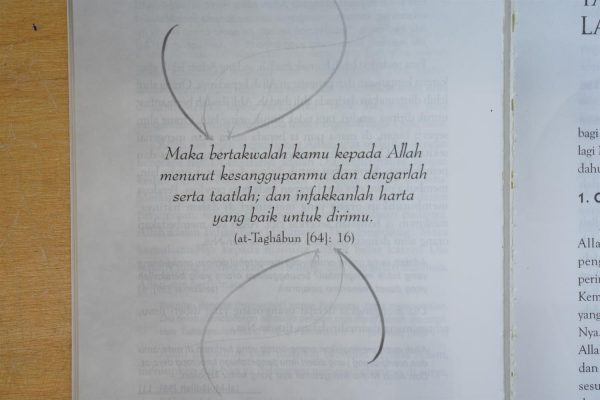 Maka bertakwalah kamu kepada Allah
menurut kesanggupanmu dan dengarlah
serta taatlah; dan infakkanlah harta
yang baik untuk dirimu.
(at-Taghâbun [64]: 16)
LA
bagi
lagi
dahu
1.
Alla
peng
perin
Kem
yang
Nya.
Alla
dan
sesu